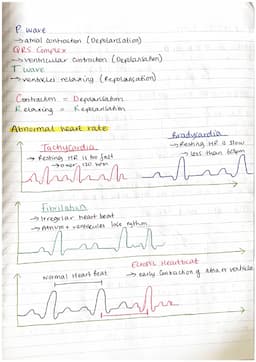 P wave
→ atrial contraction (Depolarisation)
QRS Complex
→ ventricular contraction (Depolarisation)
T wave
→ ventricles relaxing (Repolarisation)
Contraction = Depolarisation
Relaxing = Repolarisation
Abnormal heart rate
Tachycardia
→ Resting HR is too fast
→ over 120 bpm
Bradycardia
→ Resting HR is slow
→ less than 60bpm
Fibrillation
→ Irregular heart beat
→ Atrium + ventricles lose rythm
Ectopic Heartbeat
Normal Heart Beat
→ early Contraction of atria or ventricles